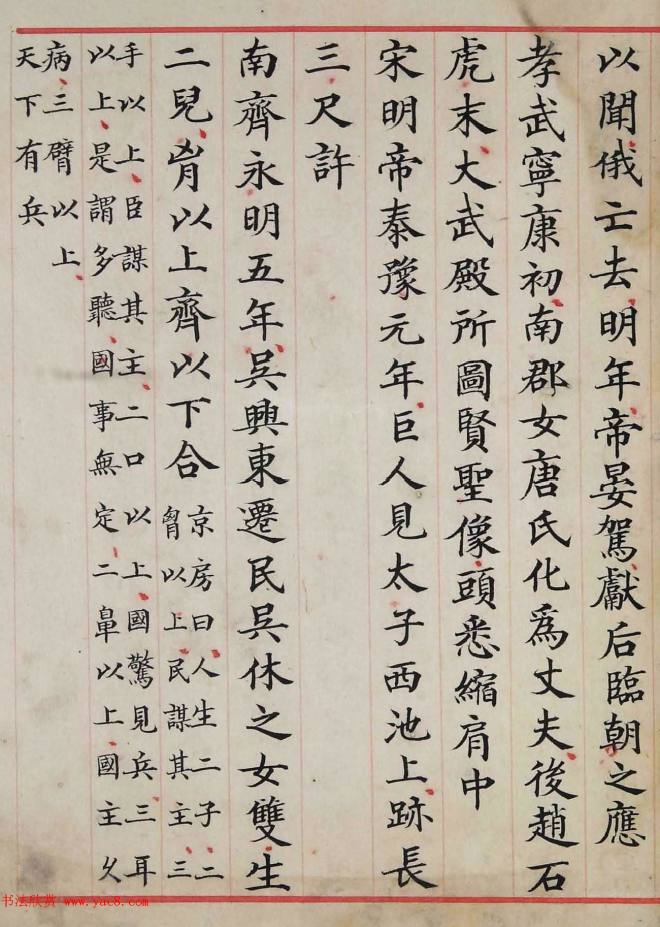 以聞俄亡去明年帝晏駕獻后臨朝之應
孝武寧康初南郡女唐氏化為丈夫後趙石
虎末大武殿所圖賢聖像頭悉縮肩中
宋明帝泰豫元年巨人見太子西池上跡長
三尺許
南齊永明五年吳興東遷民吳休之女雙生
二兒胷以上齊以下合
京房曰人生二子二
胷以上民謀其主三
手以上臣謀其主二口以上國驚見兵三耳
以上是謂多聽國事無定二鼻以上國主久
病三臂以上
天下有兵
书法欣赏 www.yac8.com